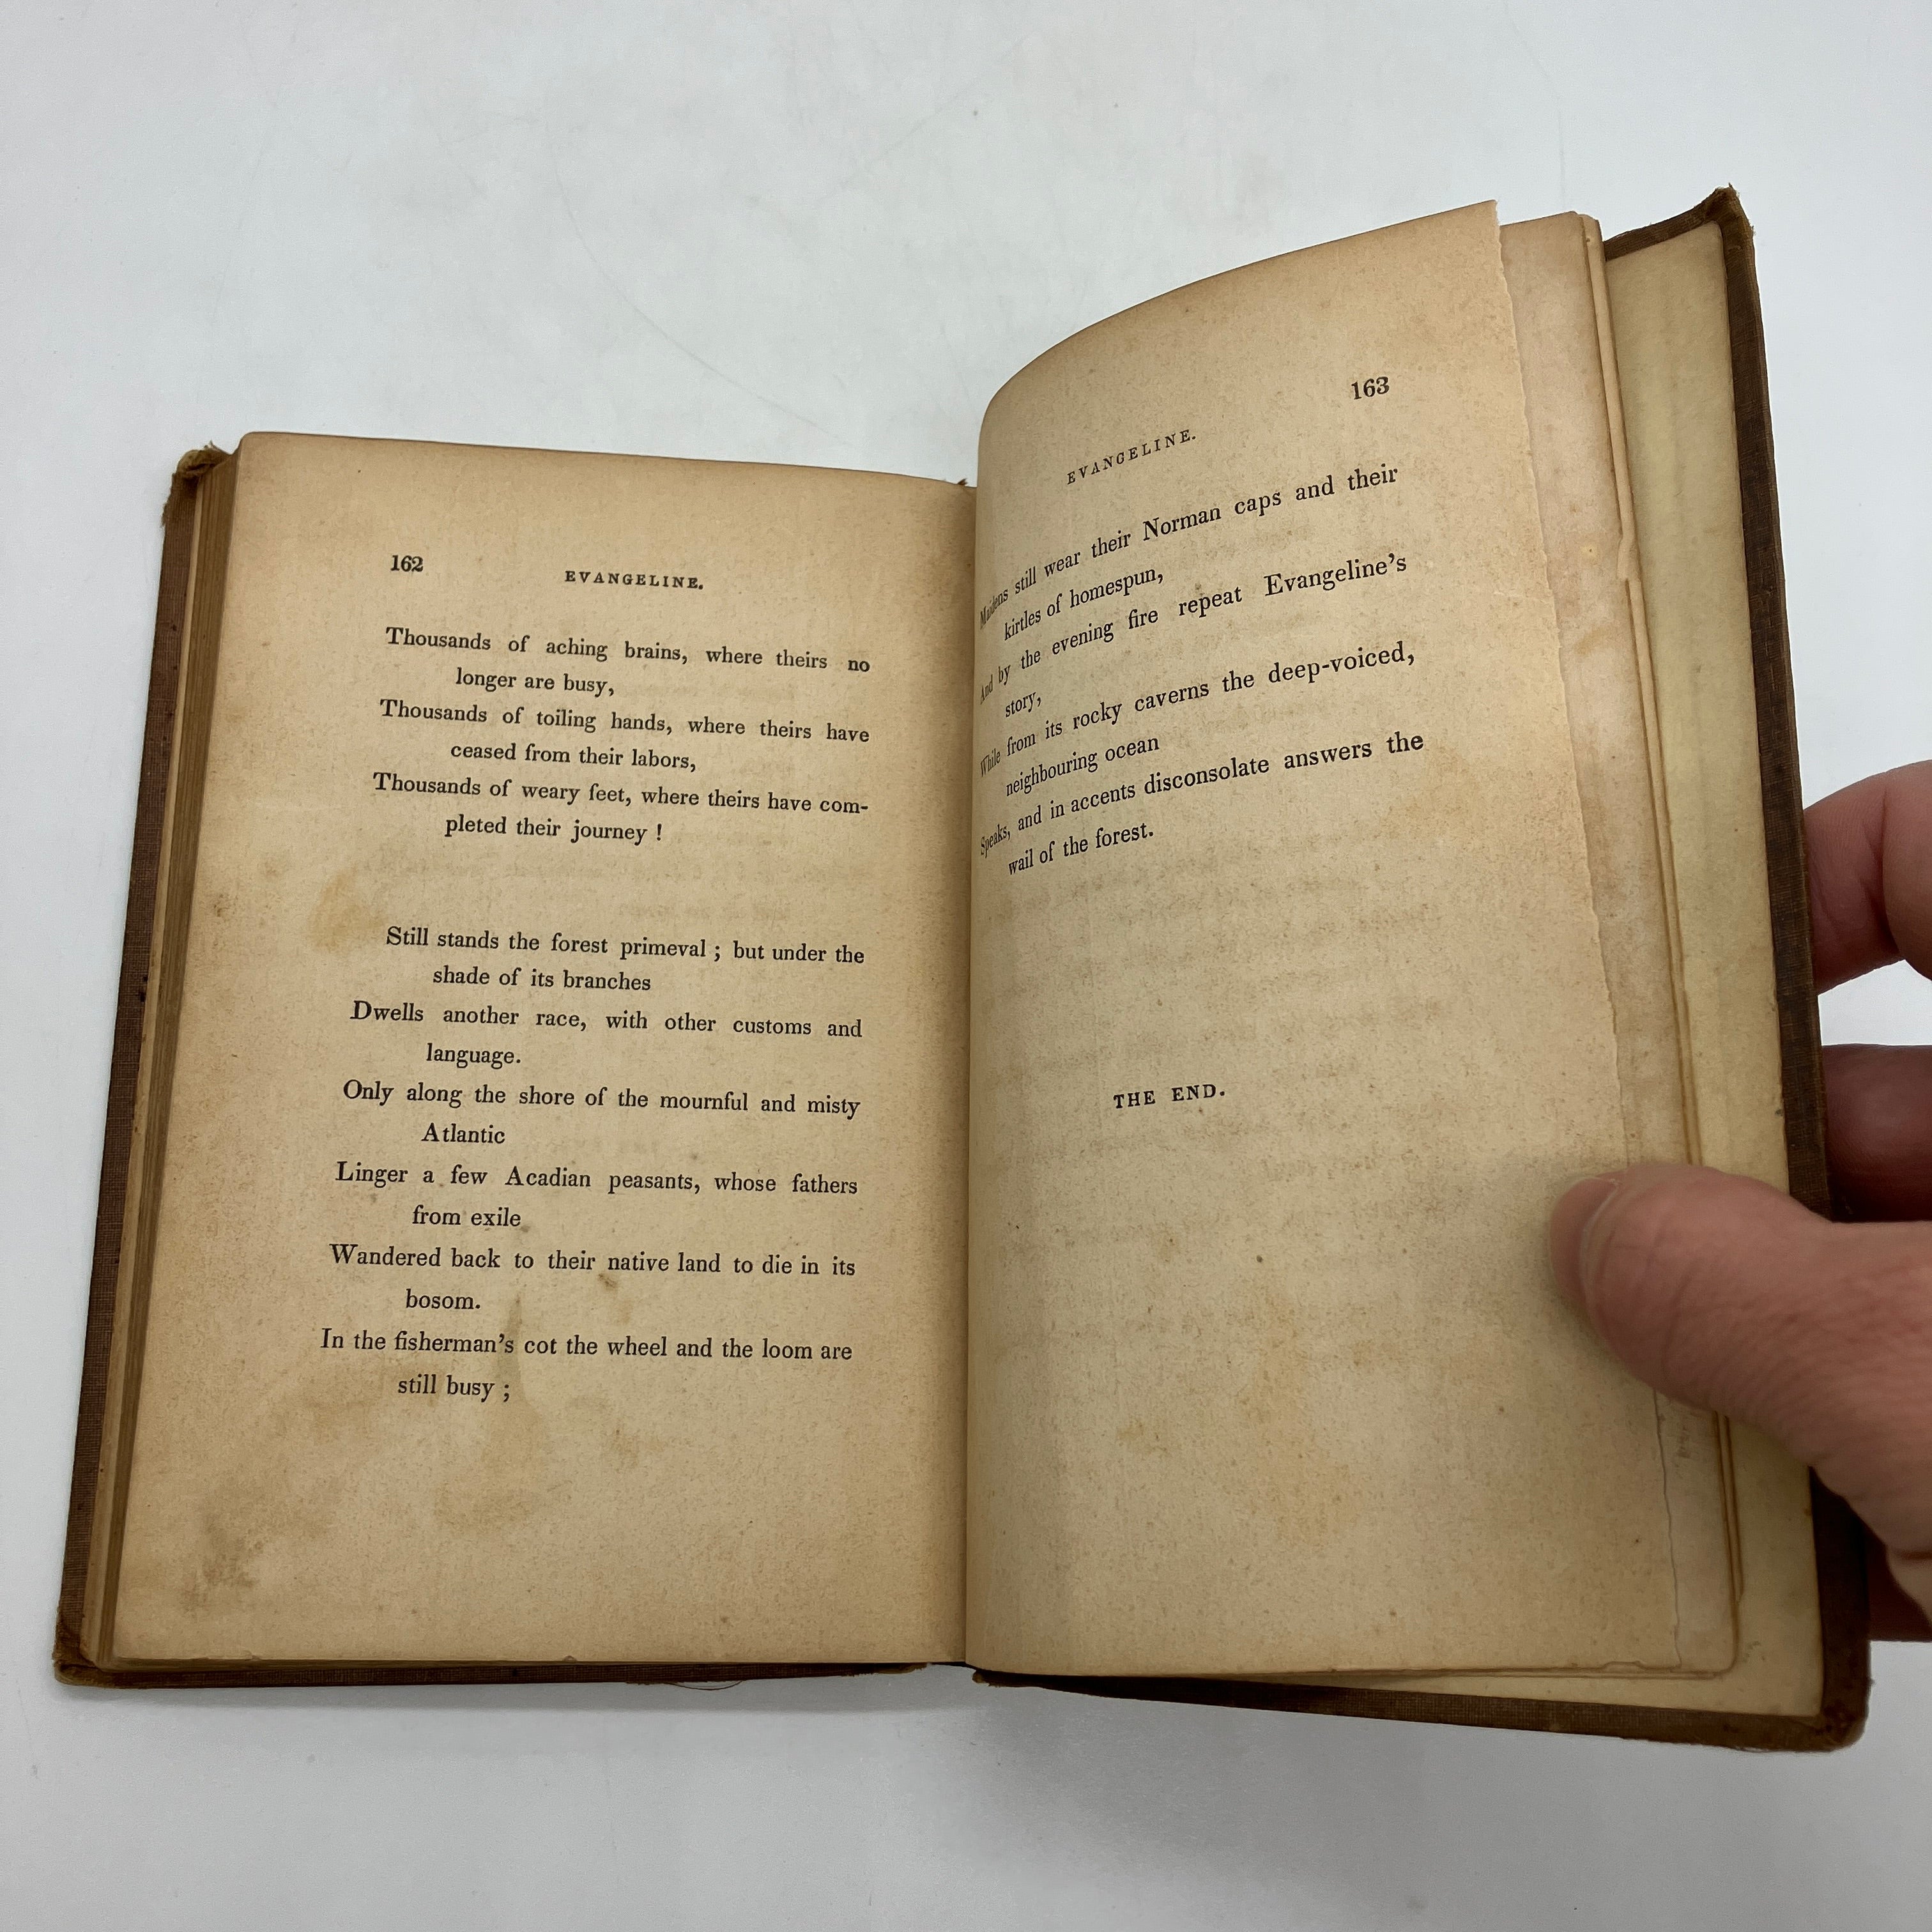 162
EVANGELINE.
Thousands of aching brains, where theirs no
longer are busy,
Thousands of toiling hands, where theirs have
ceased from their labors,
Thousands of weary feet, where theirs have com-
pleted their journey !
Still stands the forest primeval ; but under the
shade of its branches
Dwells another race, with other customs and
language.
Only along the shore of the mournful and misty
Atlantic
Linger a few Acadian peasants, whose fathers
from exile
Wandered back to their native land to die in its
bosom.
In the fisherman's cot the wheel and the loom are
still busy ;
163
EVANGELINE.
Maidens still wear their Norman caps and their
kirtles of homespun,
And by the evening fire repeat Evangeline's
story,
While from its rocky caverns the deep-voiced,
neighbouring ocean
Speaks, and in accents disconsolate answers the
wail of the forest.
THE END.